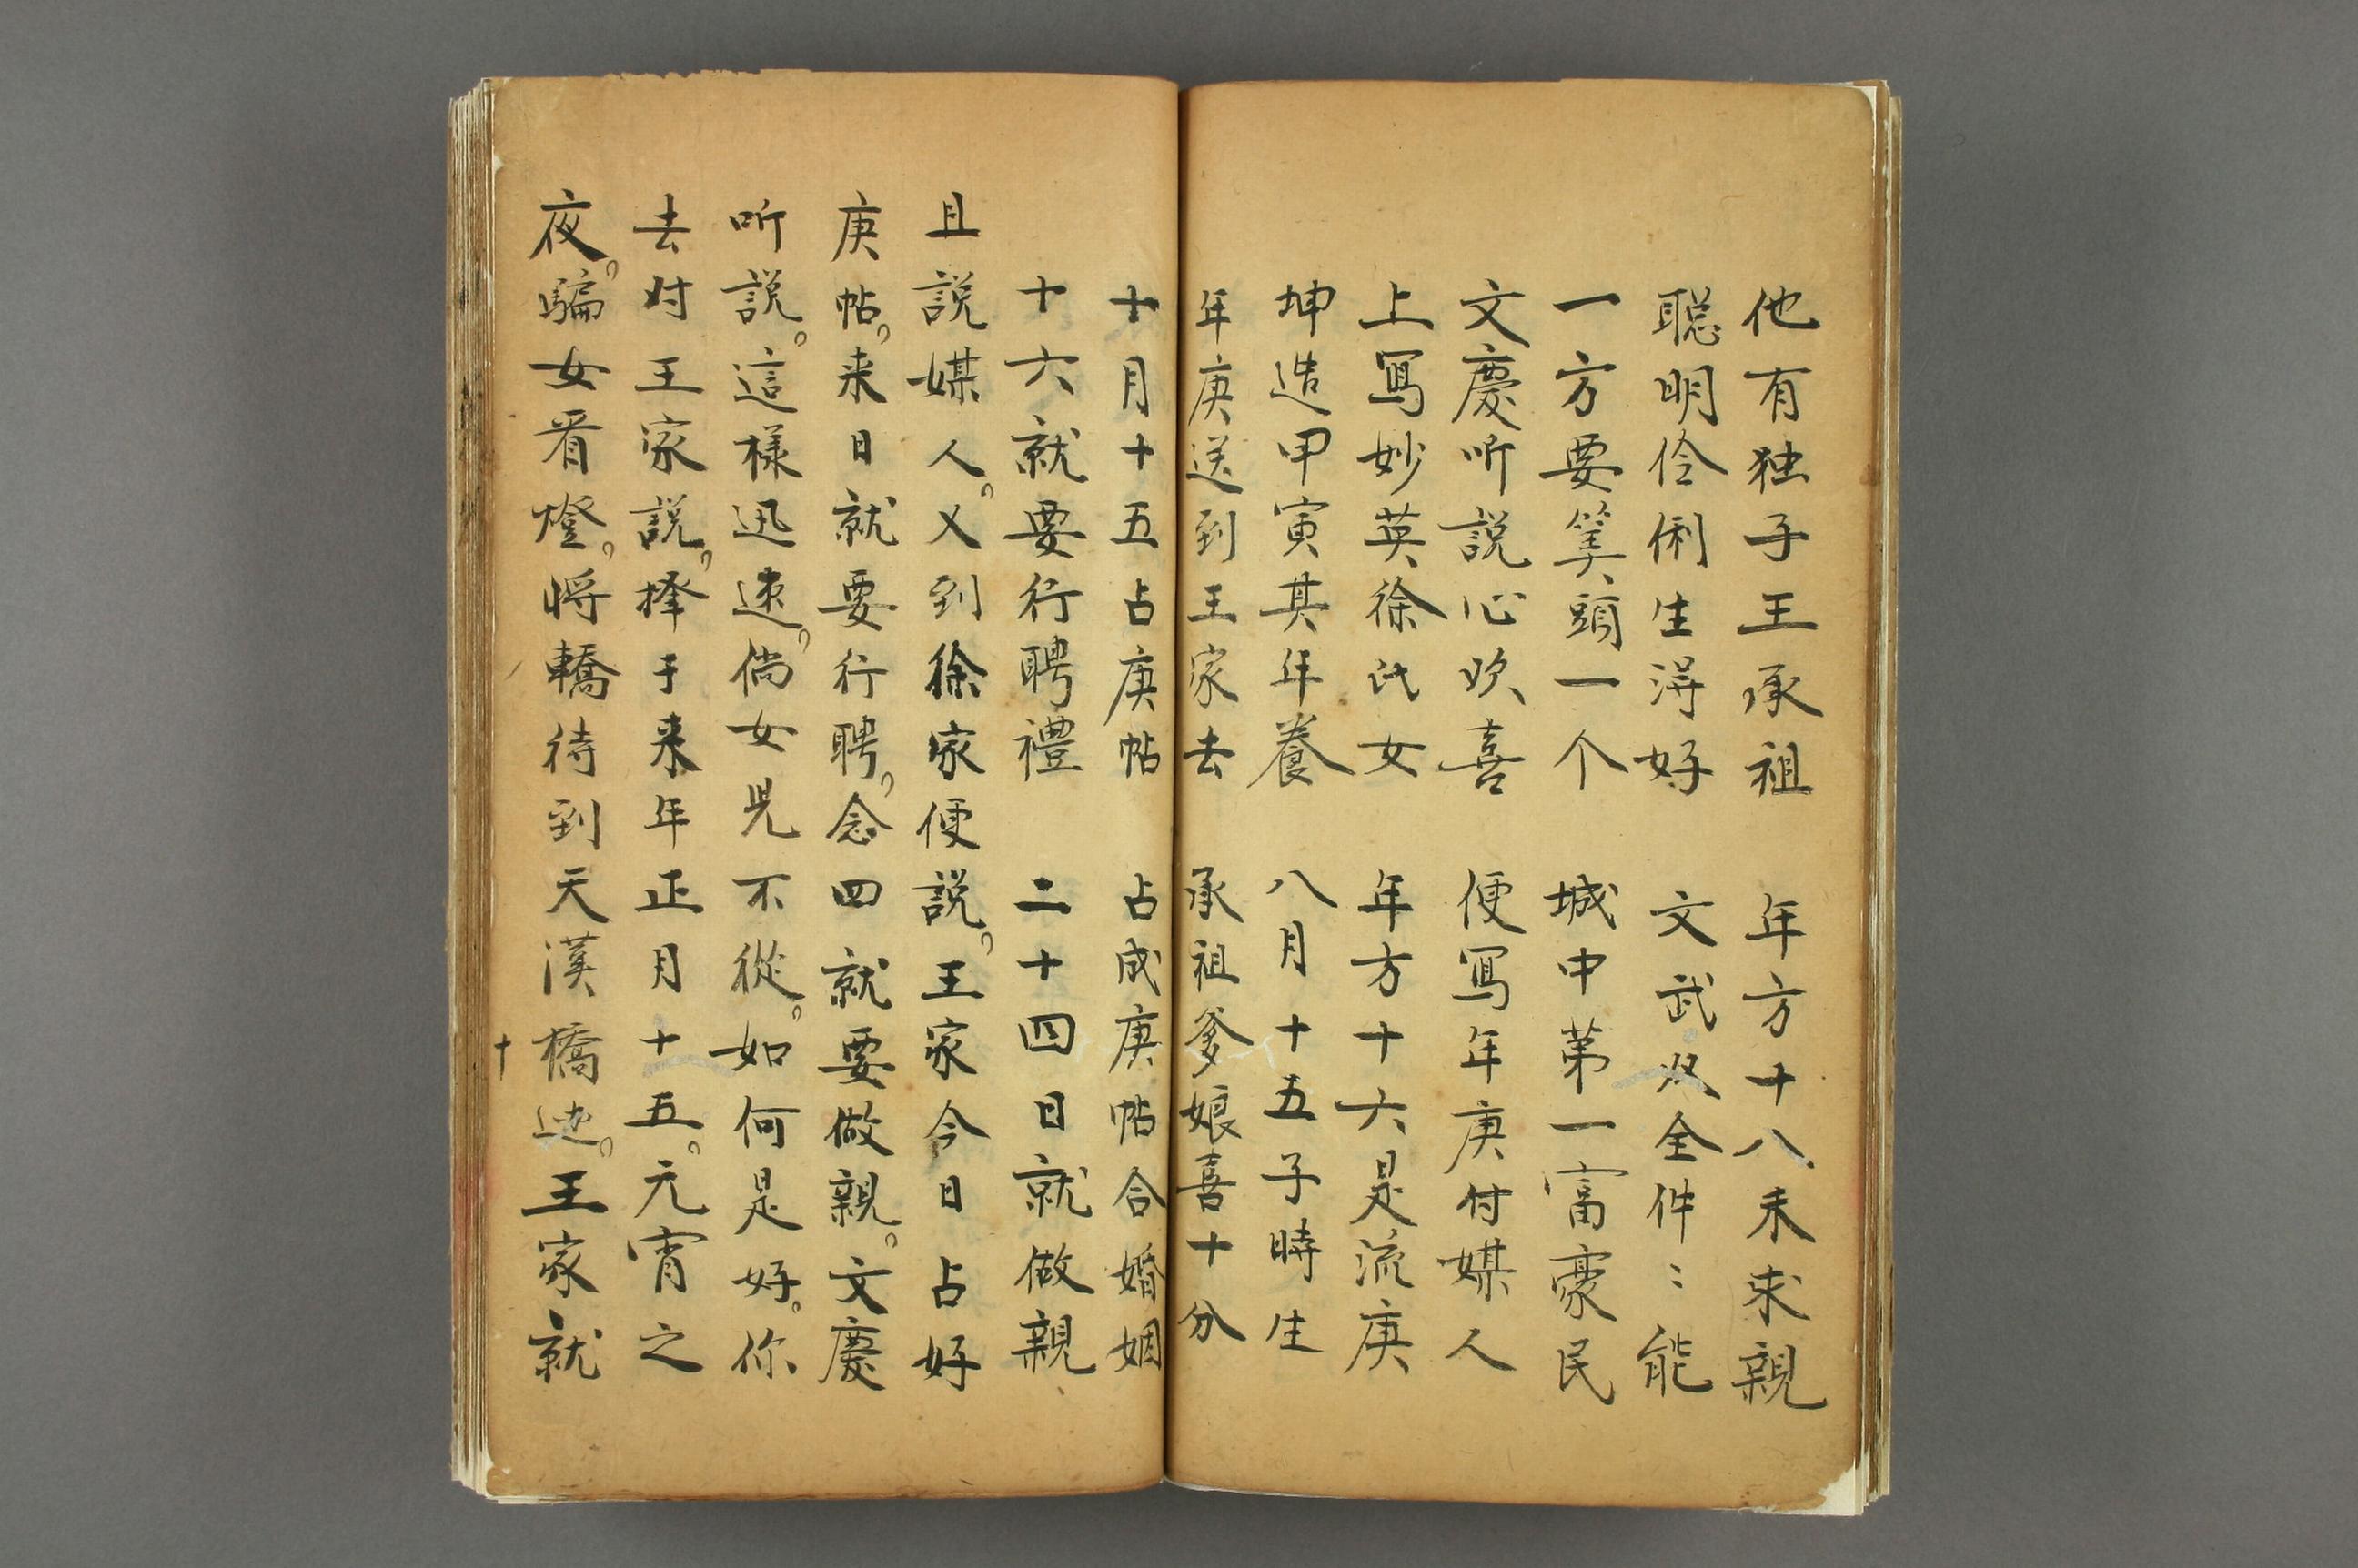 他有独子王承祖　年方十八未求親
聪明伶俐生淂好　文武双全件〻能
一方要筭頭一个　城中第一富豪民
文慶听説心欢喜　便寫年庚付媒人
上寫妙英徐氏女　年方十六是流庚
坤造甲寅其年養　八月十五子時生
年庚送到王家去　承祖爹娘喜十分
十月十五占庚帖　占成庚帖合婚姻
十六就要行聘禮　二十四日就做親
且説媒人。又到徐家便説。王家今日占好
庚帖。来日就要行聘。念四就要做親。文慶
听説。這樣迅速。倘女児不從。如何是好。你
去対王家説。擇于来年正月十五。元宵之
夜。騙女看燈。将轎待到天漢橋边。王家就
十